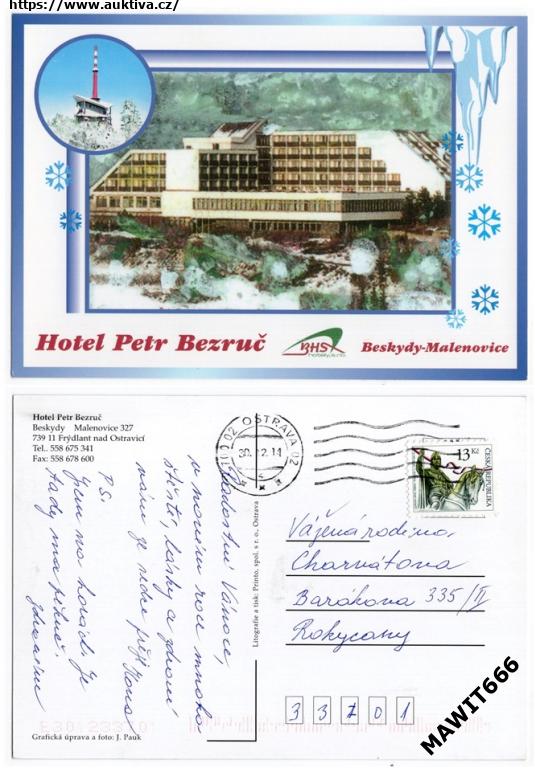 https://www.auktiva.cz/
Hotel Petr Bezruč
RHS
Beskydy-Malenovice
Hotel Petr Bezruč
Beskydy Malenovice 327
739 11 Frýdlant nad Ostravicí
Tel.. 558 675 341
Fax: 558 678 600
Radostné Vánoce,
v novém roce mnoho
štěstí, lásky a zdraví
vám ze srdce přeje Hana
P.S.
Jsem na horách. Je
tady ma pěkně.
Zdravím
Grafická úprava a foto: J. Pauk
Litografie a tisk: Printo, spol. s r. o., Ostrava
OSTRAVA 02
702 02
30.12.14
ČESKÁ REPUBLIKA
13 Kč
Vážená rodina,
Charvátova
Barákova 335/II
Rokycany
3 3 7 0 1
MAWIT666